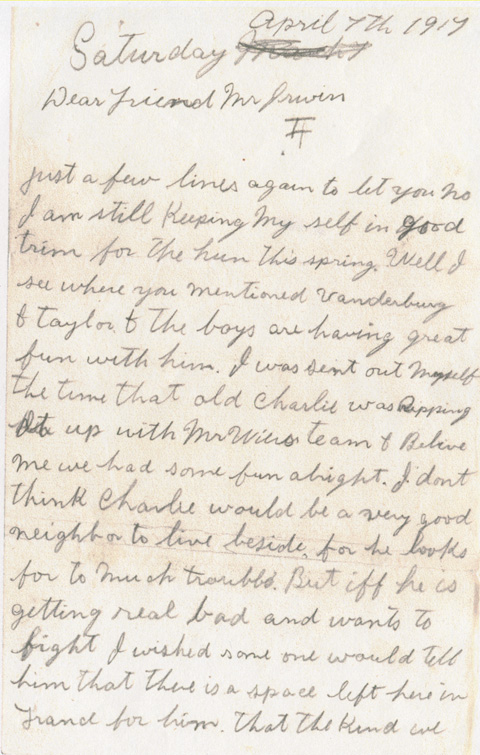 April 7th 1917
Saturday
Dear friend Mr Irwin
just a few lines again to let you no
I am still Keeping My self in good
trim for the hun this spring. Well I
see where you mentioned Vanderburg
& taylor & the boys are having great
fun with him. I was sent out Myself
the time that old Charlie was Ripping
it up with Mr team & Belive
me we had some fun alright. I dont
think Charlie would be a very good
neighbor to live beside, for he looks
for to much trouble. But iff he is
getting real bad and wants to
fight I wished some one would tell
him that there is a space left here in
France for him. that the Kind we